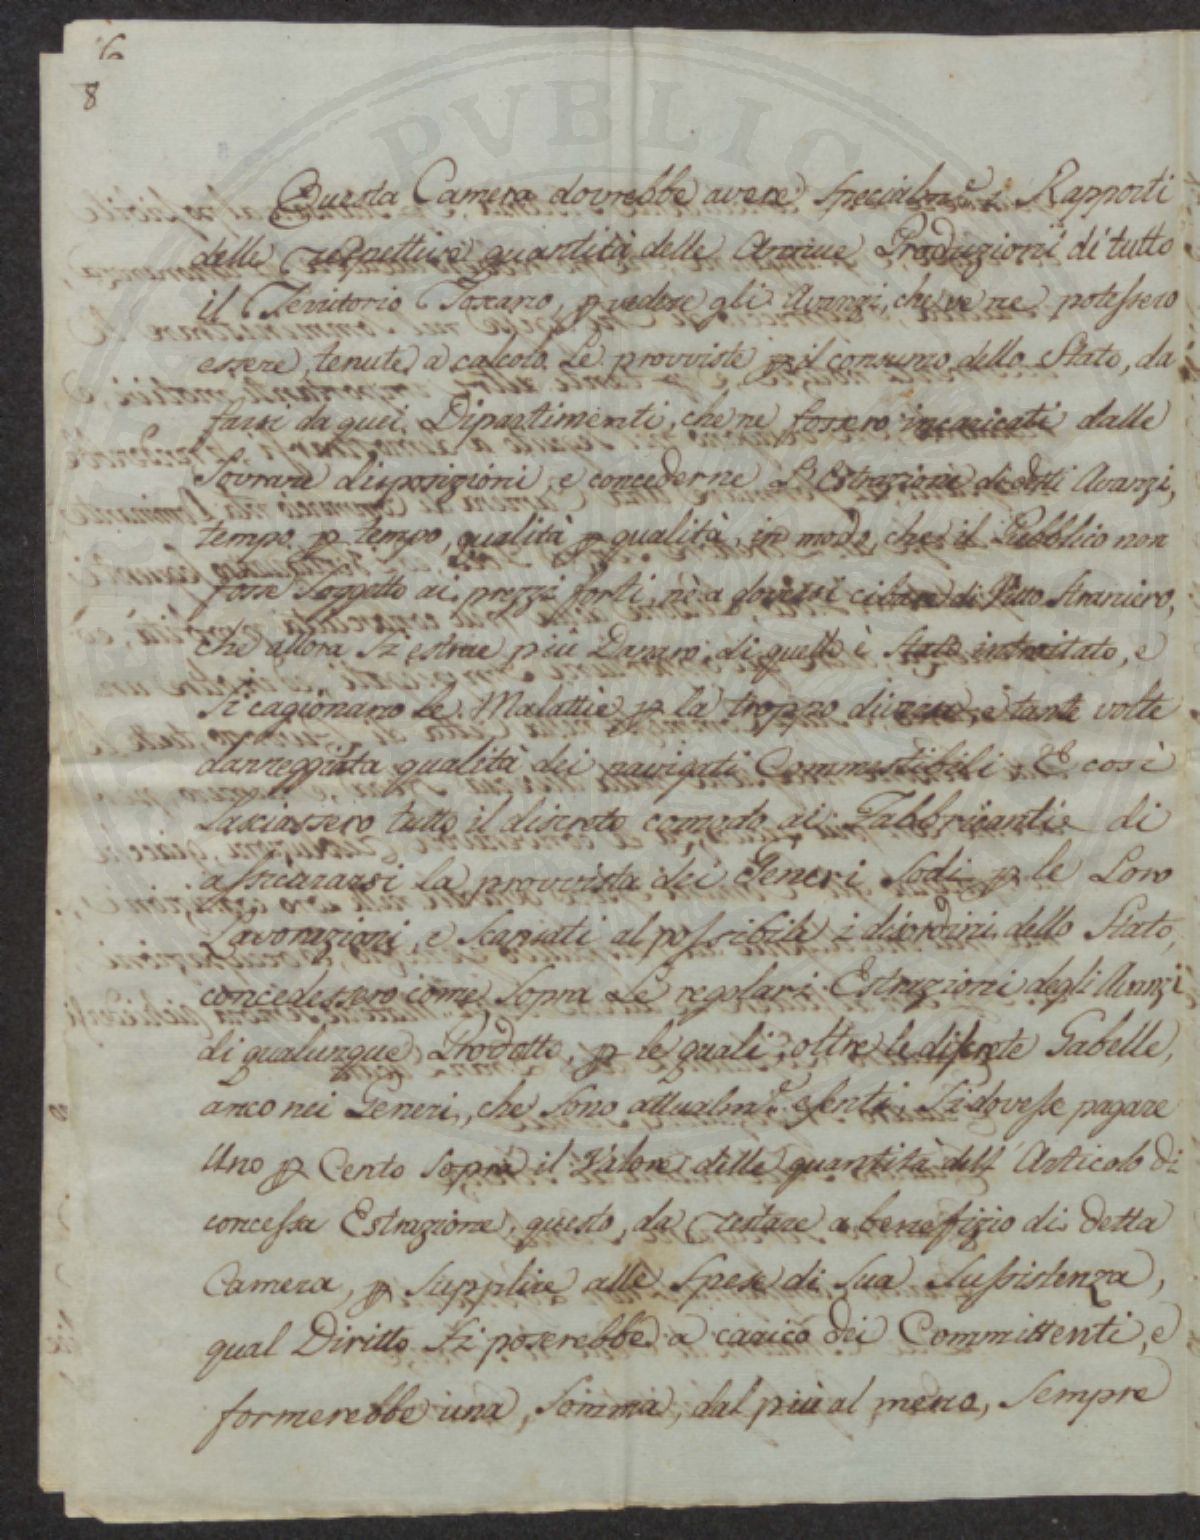 6
8
Questa Camera dovrebbe avere specialm.e i Rapporti
delle respettive quantità delle Annue Produzioni di tutto
il Territorio Toscano, p vedere gli Avanzi, che ve ne potessero
essere, tenute a calcolo Le provviste p il consumo dello Stato, da
farsi da quei Dipartimenti, che ne fossero incaricati dalle
Sovrane disposizioni, e concederne L'Estrazione di detti Avanzi,
tempo p tempo, qualità p qualità, in modo, che il Pubblico non
fosse soggetto ai prezzi forti, nè a doversi cibare di Vitto Straniero,
che allora si estrae più Danaro, di quello è stato introitato, e
si cagionano Le Malattie p la troppo diversa, e tante volte
danneggiata qualità dei navigati Commestibili. E così
Lasciassero tutto il discreto comodo ai Fabbricanti di
assicurarsi la provvista dei Generi Sodi p le Loro
Lavorazioni, e scansati al possibile i disordini dello Stato,
concedessero come sopra Le regolari Estrazioni degli Avanzi
di qualunque Prodotto, p le quali, oltre le discrete Gabelle,
anco nei Generi, che sono attualm.e esenti, si dovesse pagare
Uno p Cento sopra il Valore della quantità dell' Articolo di
concessa Estrazione, questo, da restare a benefizio di detta
Camera, p supplire alle spese di sua sussistenza,
qual Diritto si poserebbe a carico dei Committenti, e
formerebbe una somma, dal più al meno, sempre